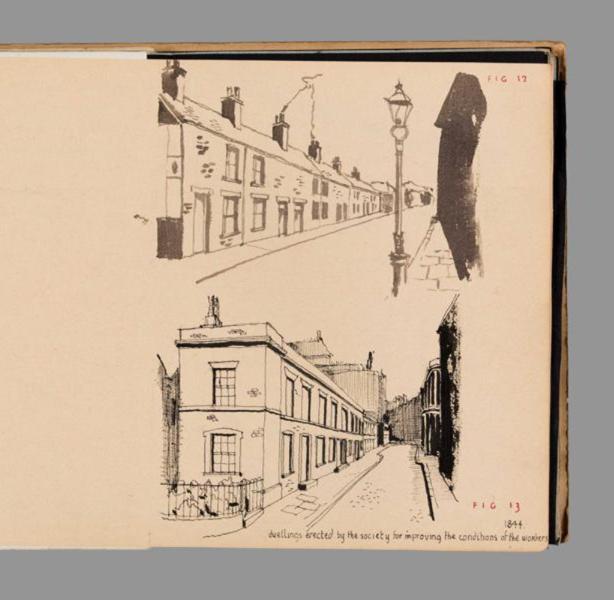 FIG 12
FIG 13
1844.
dwellings erected by the society for improving the conditions of the workers